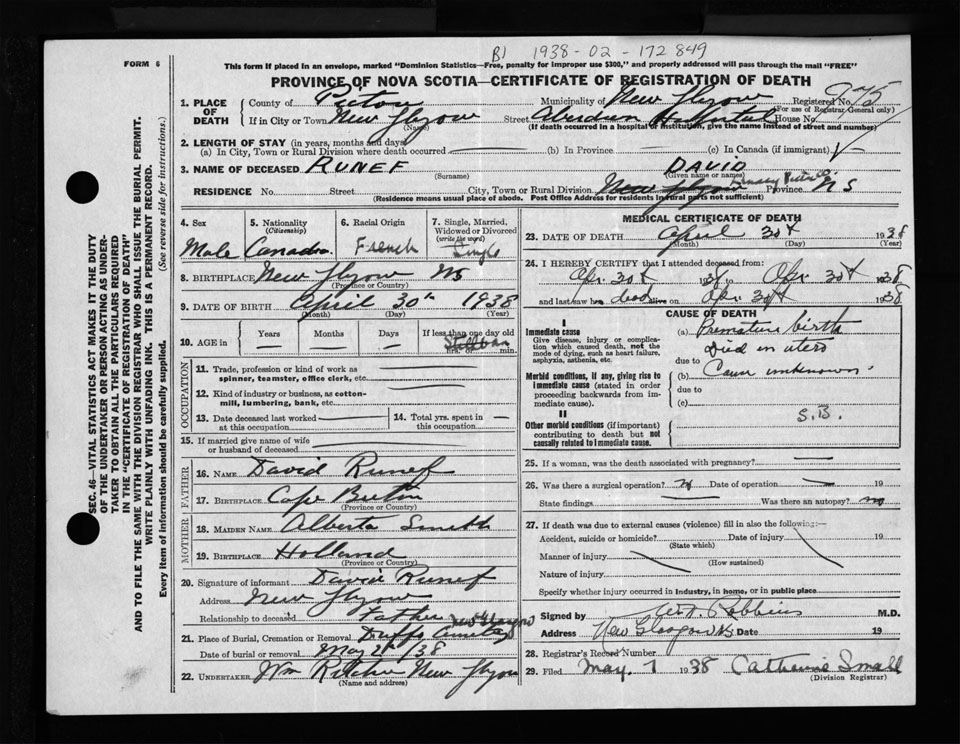 B) 1938-02-172849
FORM 6
This form if placed in an envelope, marked "Dominion Statistics—Free, penalty for improper use $300," and properly addressed will pass through the mail "FREE"
PROVINCE OF NOVA SCOTIA—CERTIFICATE OF REGISTRATION OF DEATH
SEC. 46—VITAL STATISTICS ACT MAKES IT THE DUTY
OF THE UNDERTAKER OR PERSON ACTING AS UNDER-
TAKER TO OBTAIN ALL THE PARTICULARS REQUIRED
IN THE "CERTIFICATE OF REGISTRATION OF DEATH"
AND TO FILE THE SAME WITH THE DIVISION REGISTRAR WHO SHALL ISSUE THE BURIAL PERMIT.
WRITE PLAINLY WITH UNFADING INK. THIS IS A PERMANENT RECORD.
Every item of information should be carefully supplied. (See reverse side for instructions.)
1. PLACE OF DEATH
County of Pictou Municipality of New Glasgow Registered No.
(For use of Registrar General only)
If in City or Town New Glasgow Street Aberdeen Hospital House No.
(Name) (If death occurred in a hospital or institution, give the name instead of street and number)
2. LENGTH OF STAY (in years, months and days)
(a) In City, Town or Rural Division where death occurred (b) In Province (c) In Canada (if immigrant)
3. NAME OF DECEASED RUNEF DAVID
(Surname) (Given name or names)
RESIDENCE No. Street City, Town or Rural Division New Glasgow Province NS
(Residence means usual place of abode. Post Office Address for residents in rural parts not sufficient)
4. Sex Male
5. Nationality (Citizenship) Canada
6. Racial Origin French
7. Single, Married, Widowed or Divorced (write the word) Single
8. BIRTHPLACE New Glasgow NS
(Province or Country)
9. DATE OF BIRTH April 30th 1938
(Month) (Day) (Year)
10. AGE in Years Months Days If less than one day old Stillborn hrs. or min.
OCCUPATION
11. Trade, profession or kind of work as spinner, teamster, office clerk, etc.
12. Kind of industry or business, as cotton-mill, lumbering, bank, etc.
13. Date deceased last worked at this occupation
14. Total yrs. spent in this occupation
15. If married give name of wife or husband of deceased
FATHER
16. NAME David Runef
17. BIRTHPLACE Cape Breton
(Province or Country)
MOTHER
18. MAIDEN NAME Alberta Smith
19. BIRTHPLACE Holland
(Province or Country)
20. Signature of informant David Runef
Address New Glasgow
Relationship to deceased Father
New Glasgow
21. Place of Burial, Cremation or Removal Duffs Cemetery
Date of burial or removal May 2nd/38
22. UNDERTAKER Wm Ritchie New Glasgow
(Name and address)
MEDICAL CERTIFICATE OF DEATH
23. DATE OF DEATH April 30th 1938
(Month) (Day) (Year)
24. I HEREBY CERTIFY that I attended deceased from:
Apr 30th 1938 to Apr 30th 1938
and last saw h dead alive on Apr 30th 1938
CAUSE OF DEATH
I
Immediate cause
Give disease, injury or complication which caused death, not the mode of dying, such as heart failure, asphyxia, asthenia, etc.
(a) Premature birth
Died in utero
due to
Morbid conditions, if any, giving rise to immediate cause (stated in order proceeding backwards from immediate cause).
(b) Cause unknown.
due to
(c)
II
Other morbid conditions (if important) contributing to death but not causally related to immediate cause.
S.B.
25. If a woman, was the death associated with pregnancy?
26. Was there a surgical operation? no Date of operation 19
State findings Was there an autopsy? no
27. If death was due to external causes (violence) fill in also the following:—
Accident, suicide or homicide? Date of injury 19
(State which)
Manner of injury
(How sustained)
Nature of injury
Specify whether injury occurred in industry, in home, or in public place
Signed by Robbins M.D.
Address New Glasgow NS Date 19
28. Registrar's Record Number
29. Filed May 7 1938 Catherine Small
(Division Registrar)